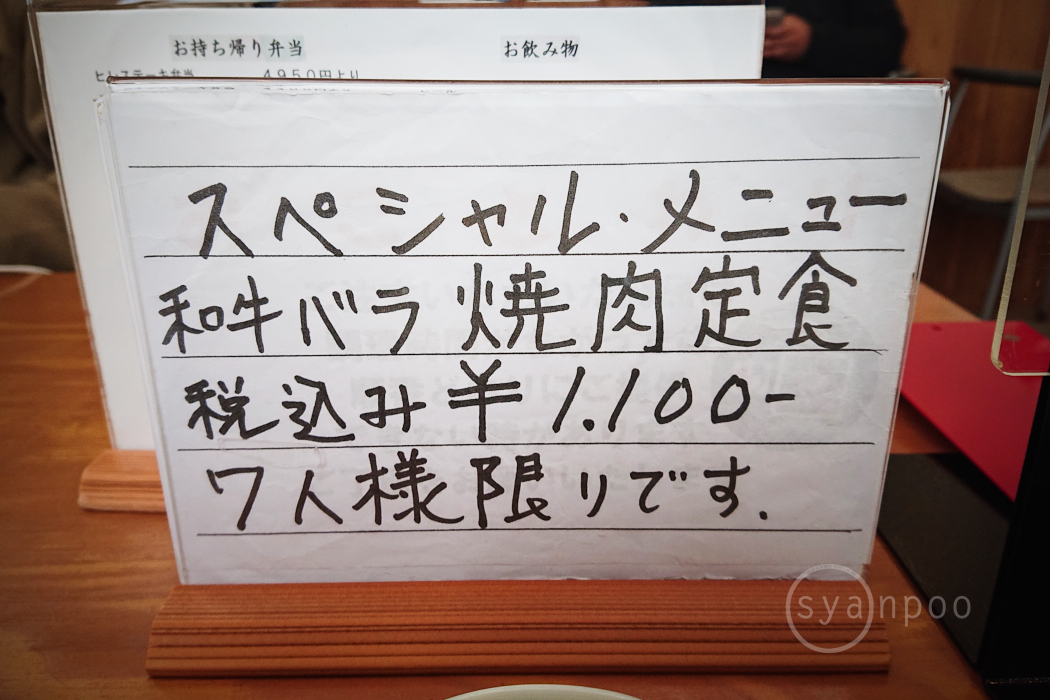 お持ち帰り弁当 お飲み物
ヒレステーキ弁当 4950円より
スペシャル・メニュー
和牛バラ焼肉定食
税込み¥1.100-
7人様限りです.
syanpoo